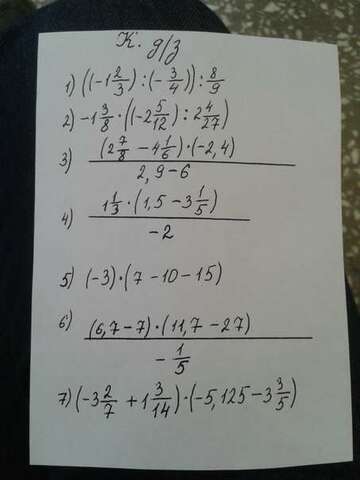 К. д/з
1) ((-1 2/3) : (- 3/4)) : 8/9
2) -1 3/8 · ((-2 5/12) : 2 4/27)
3) (2 7/8 - 4 1/6) · (-2,4)
2,9 - 6
4) 1 1/3 · (1,5 - 3 1/5)
-2
5) (-3) · (7 - 10 - 15)
6) (6,7 - 7) · (11,7 - 27)
- 1/5
7) (-3 2/7 + 1 3/14) · (-5,125 - 3 3/5)